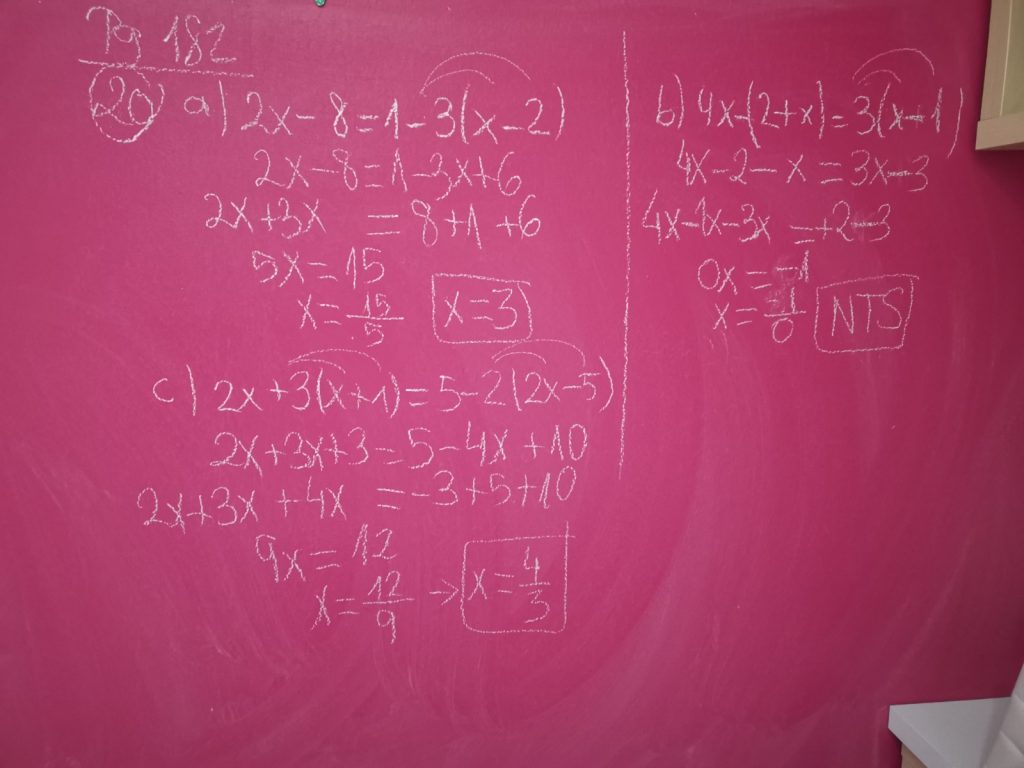 Pg 182
20 a) 2x-8=1-3(x-2)
2x-8=1-3x+6
2x+3x = 8+1+6
5x=15
x=15/5 x=3
b) 4x-(2+x)=3(x+1)
4x-2-x=3x-3
4x-1x-3x=+2-3
0x=-1
x=-1/0 NTS
c) 2x+3(x+1)=5-2(2x-5)
2x+3x+3=5-4x+10
2x+3x+4x =-3+5+10
9x=12
x=12/9 → x=4/3